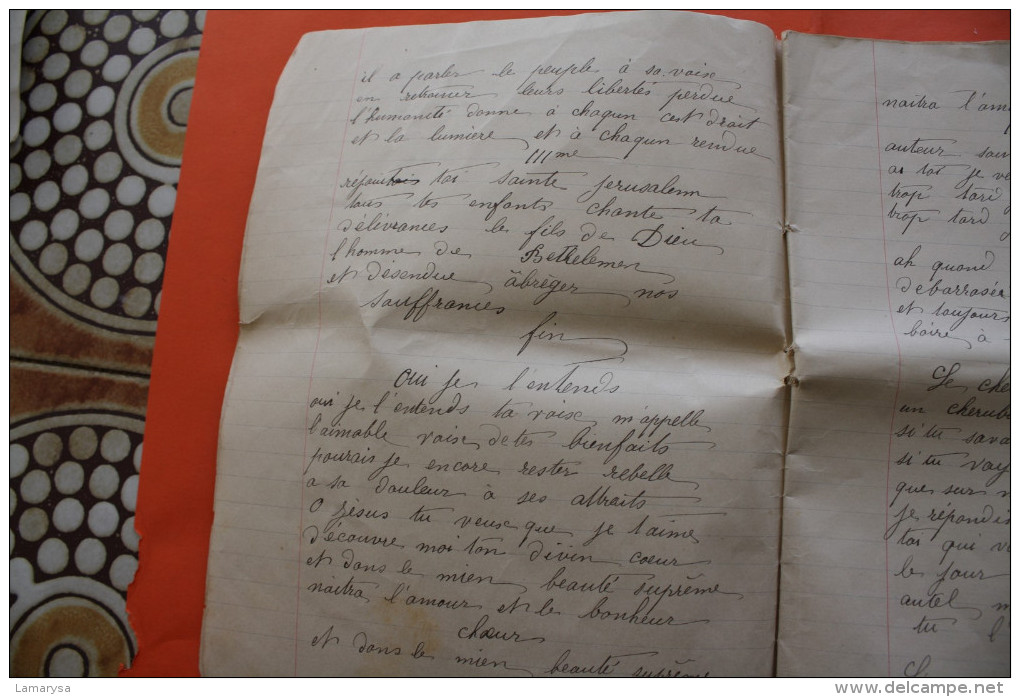 il a parler le peuple à sa voix
en retrouver leurs libertés perdue
l'humanité donne à chaqun cest drait
et la lumière et à chaqun rendue
IIIme
réjouit toi sainte Jerusalem
tous tes enfants chante ta
délivrances le fils de Dieu
l'homme de Bethelemen
et désendue âbrèger nos
souffrances
fin
oui je l'entends
oui je l'entends ta voix m'appelle
l'aimable voix de tes bienfaits
pourais je encore rester rebelle
a sa douleur à ses attraits
O jèsus tu veux que je t'aime
découvre moi ton divin cœur
et dans le mien beauté suprême
naitra l'amour et le bonheur
chœur
et dans le mien beauté suprême
naitra l'am
auteur
a toi je ve
trop tard
trop tard
ah quand
debarrasér
et toujours
boire à
Le che
un cherub
si tu sava
si tu voy
que sur
je répondis
toi qui v
le jour
autel m
tu l
Le
Lamarysa
www.delcampe.net